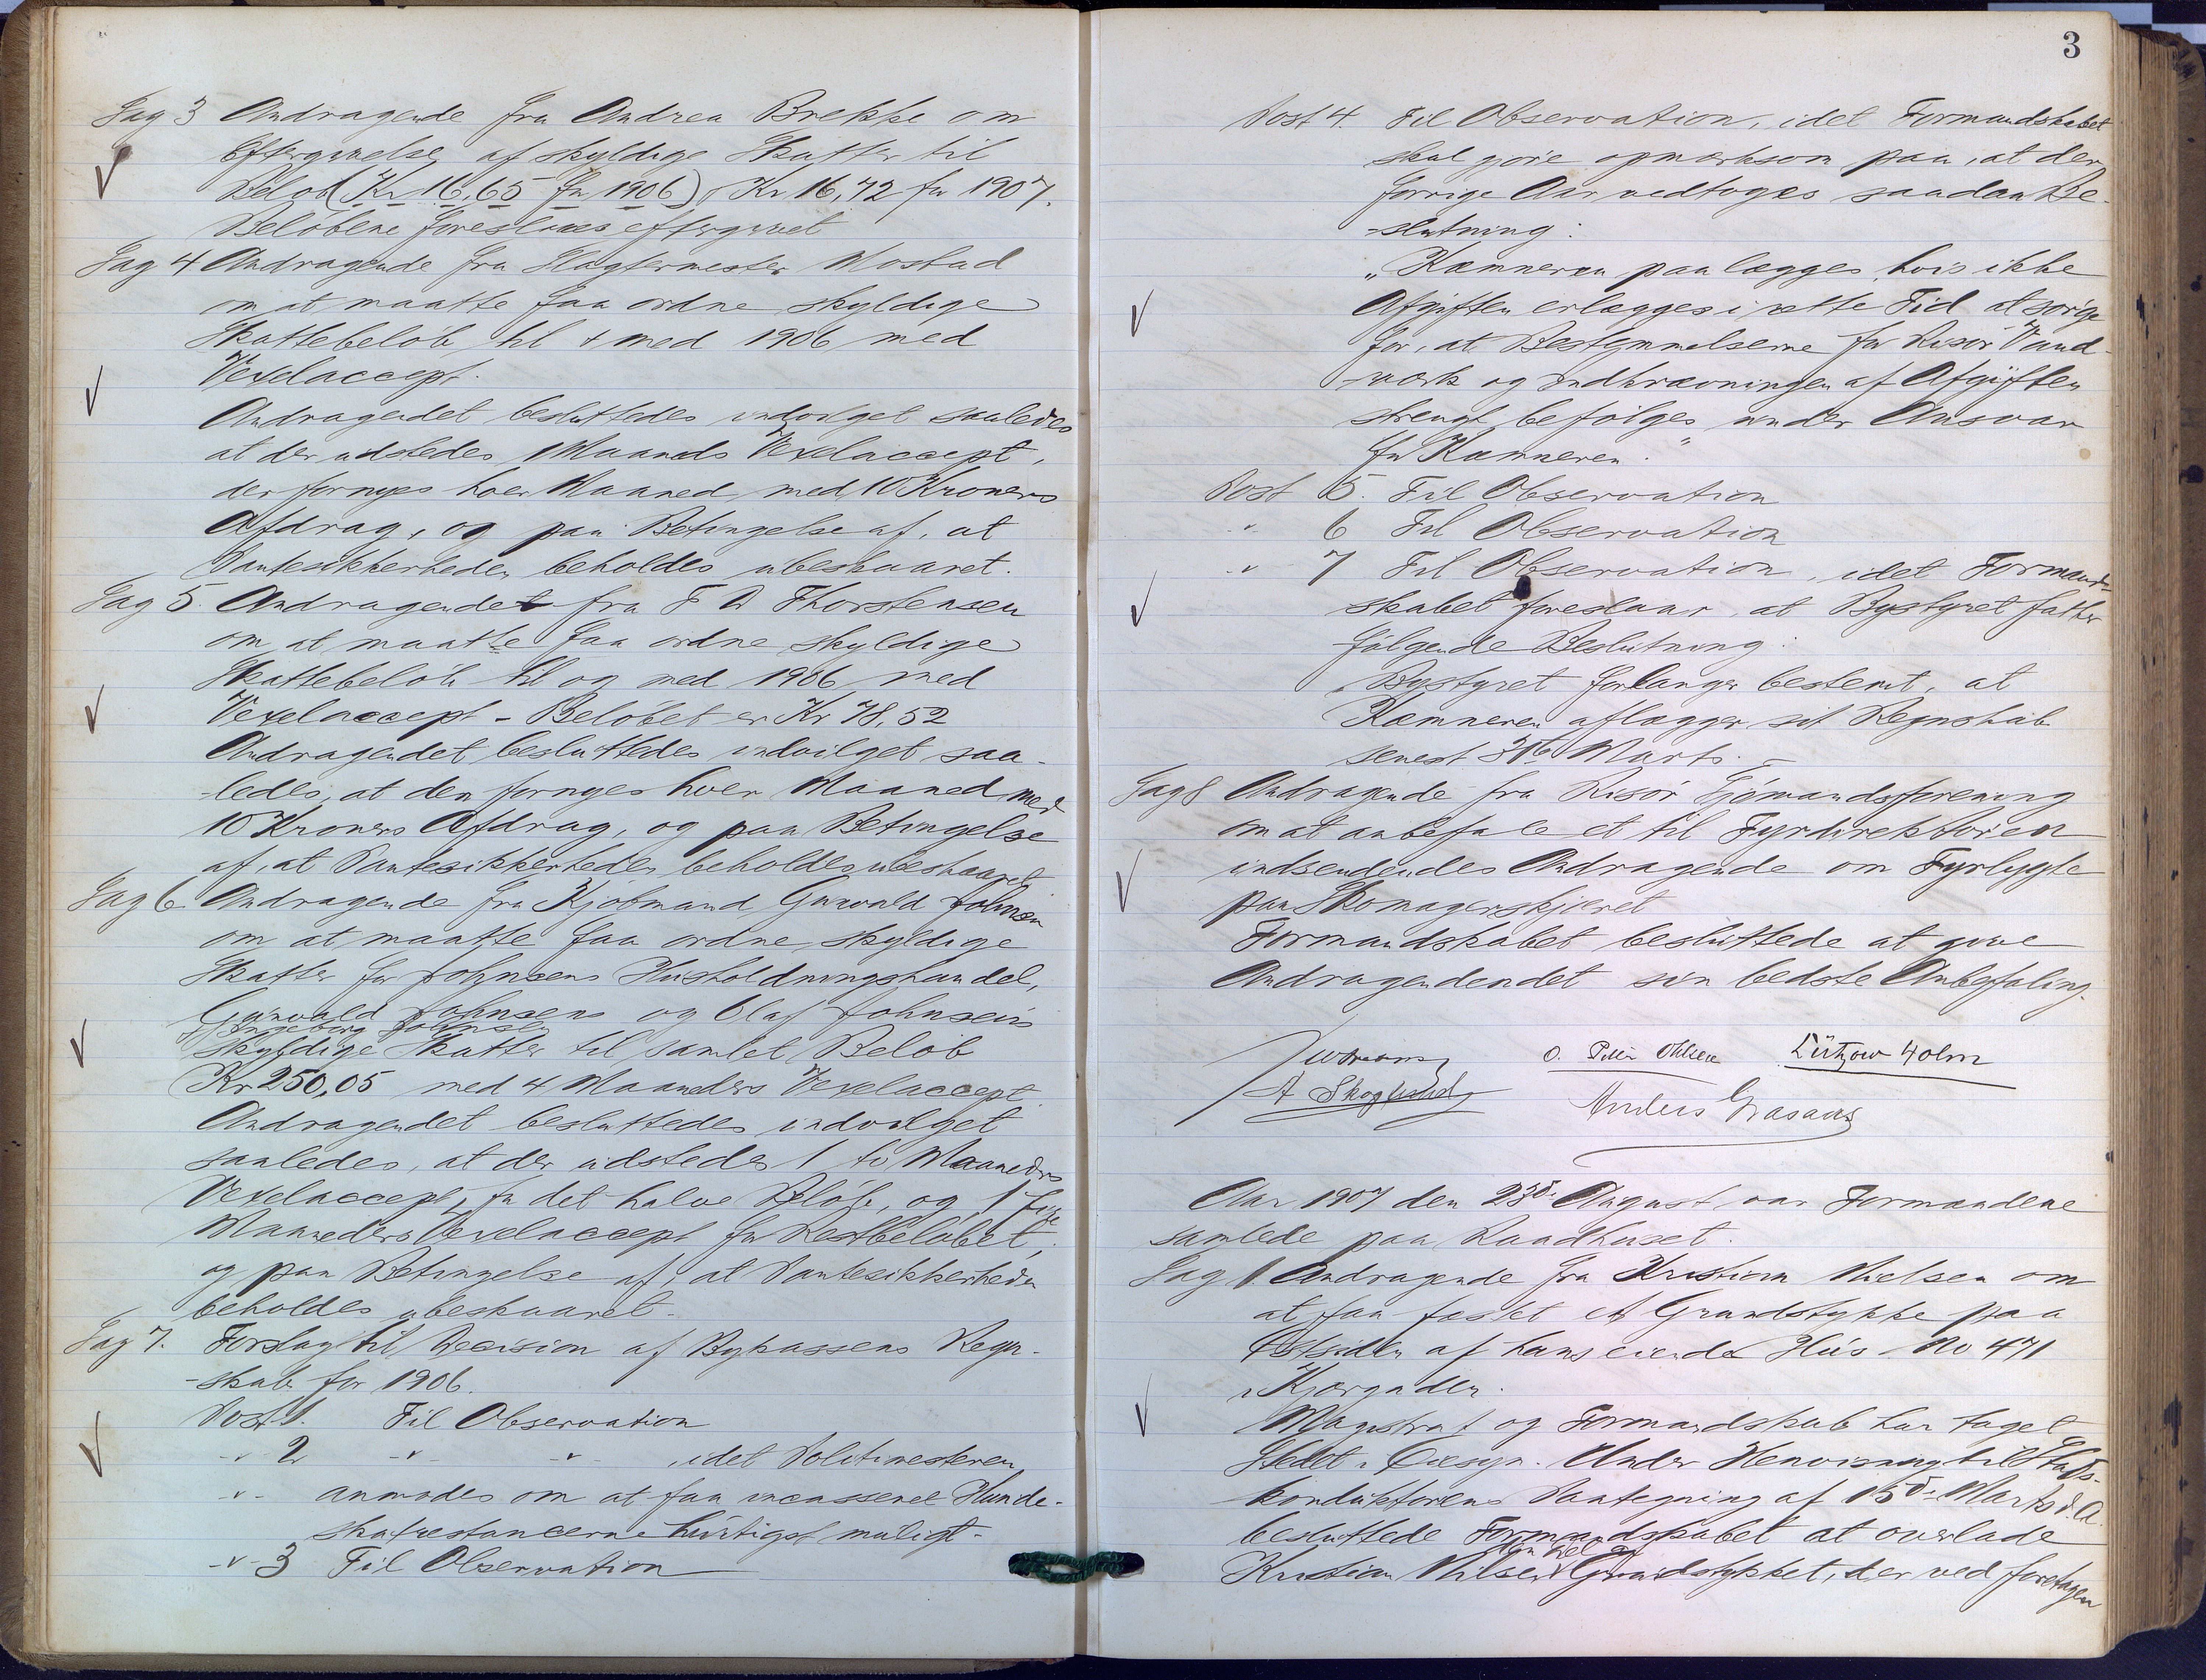 Sag 3 Andragende fra Andrea Brekke om
Eftergivelse af skyldige Skatter til
Beløb (Kr 16,65 for 1906) Kr 16,72 for 1907.
Beløbene foreslaaes eftergivet
Sag 4 Andragende fra Slagtermester Mostad
om at maatte faa ordne skyldige
Skattebeløb til & med 1906 med
Vexelaccept.
Andragendet besluttedes indvilget saaledes
at der udstedes 1 Maaneds Vexelaccept,
der fornyes hver Maaned med 10 Kroners
Afdrag, og paa Betingelse af, at
Pantesikkerheden beholdes ubeskaaret.
Sag 5. Andragendet fra F A Thorstensen
om at maatte faa ordne skyldige
Skattebeløb til og med 1906 med
Vexelaccept - Beløbet er Kr 78,52
Andragendet besluttedes indvilget saa-
-ledes, at den fornyes hver Maaned med
10 Kroners Afdrag, og paa Betingelse
af, at Pantesikkerheden beholdes ubeskaaret
Sag 6 Andragende fra Kjøbmand Gunvald Johnsen
om at maatte faa ordne skyldige
Skatter for Johnsens Husholdningshandel,
Gunvald Johnsens og Olaf Johnsens
Ingeborg Johnsens
skyldige Skatter til samlet Beløb
Kr 250,05 med 4 Maaneders Vexelaccept.
Andragendet besluttedes indvilget
saaledes, at der udstedes 1 to Maaneders
Vexelaccept for det halve Beløb, og 1 fire
Maaneders Vexelaccept for Restbeløbet,
og paa Betingelse af, at Pantesikkerheden
beholdes ubeskaaret.
Sag 7. Forslag til Decision af Bykassens Regn-
-skab for 1906.
Post 1. Til Observation
-"- 2 -"- -"- , idet Politimesteren
-"- anmodes om at faa incasseret Hunde-
skatrestancerne hurtigst muligt.
-"- 3 Til Observation
3
Post 4. Til Observation, idet Formandskabet
skal gøre opmerksom paa, at der
forrige Aar vedtoges saadan Be-
-slutning:
"Kæmneren paalægges, hvis ikke
Afgiften erlægges i rette Tid at sørge
for, at Bestemmelserne for Risør Vand-
-værk og Indkrævningen af Afgiften
strengt befølges under Ansvar
for Kæmneren."
Post 5. Til Observation
-"- 6 Til Observation
-"- 7 Til Observation, idet Formand-
skabet foreslaar, at Bystyret fatter
følgende Beslutning:
"Bystyret forlanger bestemt, at
Kæmneren aflægger sit Regnskab
senest 31te Marts.
Sag 8 Andragende fra Risør Sjømandsforening
om at anbefale et til Fyrdirektøren
indsendendes Andragende om Fyrlygte
paa Skomagerskjæret
Formandskabet besluttede at give
Andragendendet sin bedste Anbefaling.
O. Peter Ohlsen Lützow Holm
A Skoglund
Anders
Aar 1907 den 23de August var Formændene
samlede paa Raadhuset.
Sag 1. Andragende fra Kristian Nielsen om
at faa fæstet et Grundstykke paa
Østsiden af hans eiende Hus No 471
i Kjærgaden.
Magistrat og Formandskab har taget
Stedet i Øiesyn. Under Henvisning til Stads-
konduktørens Paategning af 15de Marts d. A.
besluttede Formandskabet at overlade
Kristian Nilsen Grundstykket, der ved foretagen